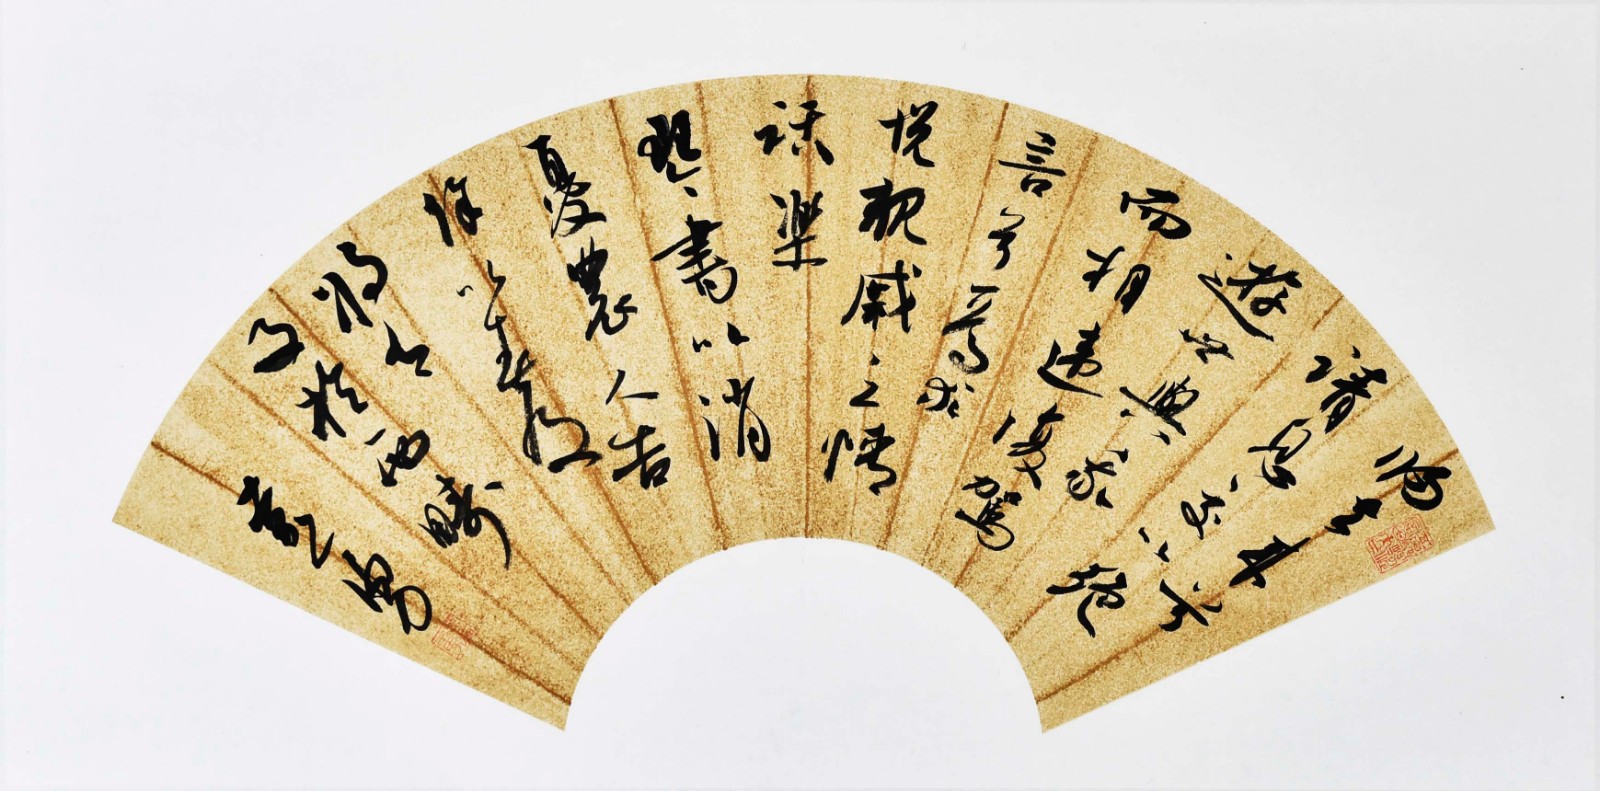 歸去來兮
請息交以絕
遊世與我
而相違復駕
言兮焉求
悅親戚之情
話樂
琴書以消
憂農人告
余以春及
將有
事於西疇